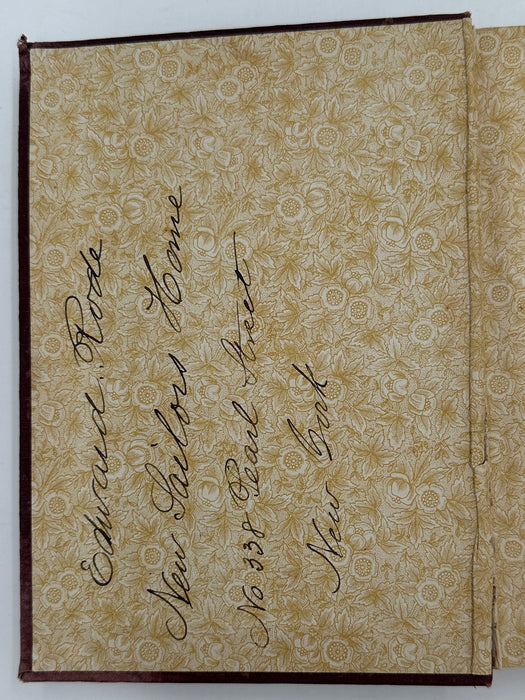 Edward Rode
New Sailors Home
No 338 Pearl Street
New York